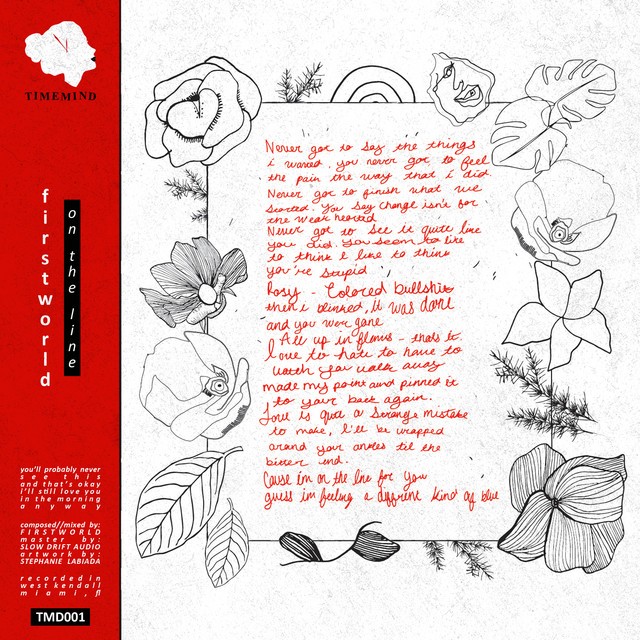 TIMEMIND
firstworld
on the line
you'll probably never
see this
and that's okay
i'll still love you
in the morning
anyway
composed//mixed by:
FIRSTWORLD
master by:
SLOW DRIFT AUDIO
artwork by:
STEPHANIE LABIADA
recorded in
west kendall
miami, fl
TMD001
Never got to say the things
i wanted. you never got to feel
the pain the way that i did.
Never got to finish what we
started. You say change isn't for
the weak hearted
Never got to see it quite like
you did. You seem to like
to think I like to think
you're stupid
Rosy - Colored bullshit
then i blinked, it was dark
and you were gone
All up in flames - thats it
love to hate to have to
watch you walk away
made my point and pinned it
to your back again.
Love is quit a strange mistake
to make, I'll be wrapped
around your ankles til the
bitter end.
Cause im on the line for you
guess im feeling a diffrent kind of blue